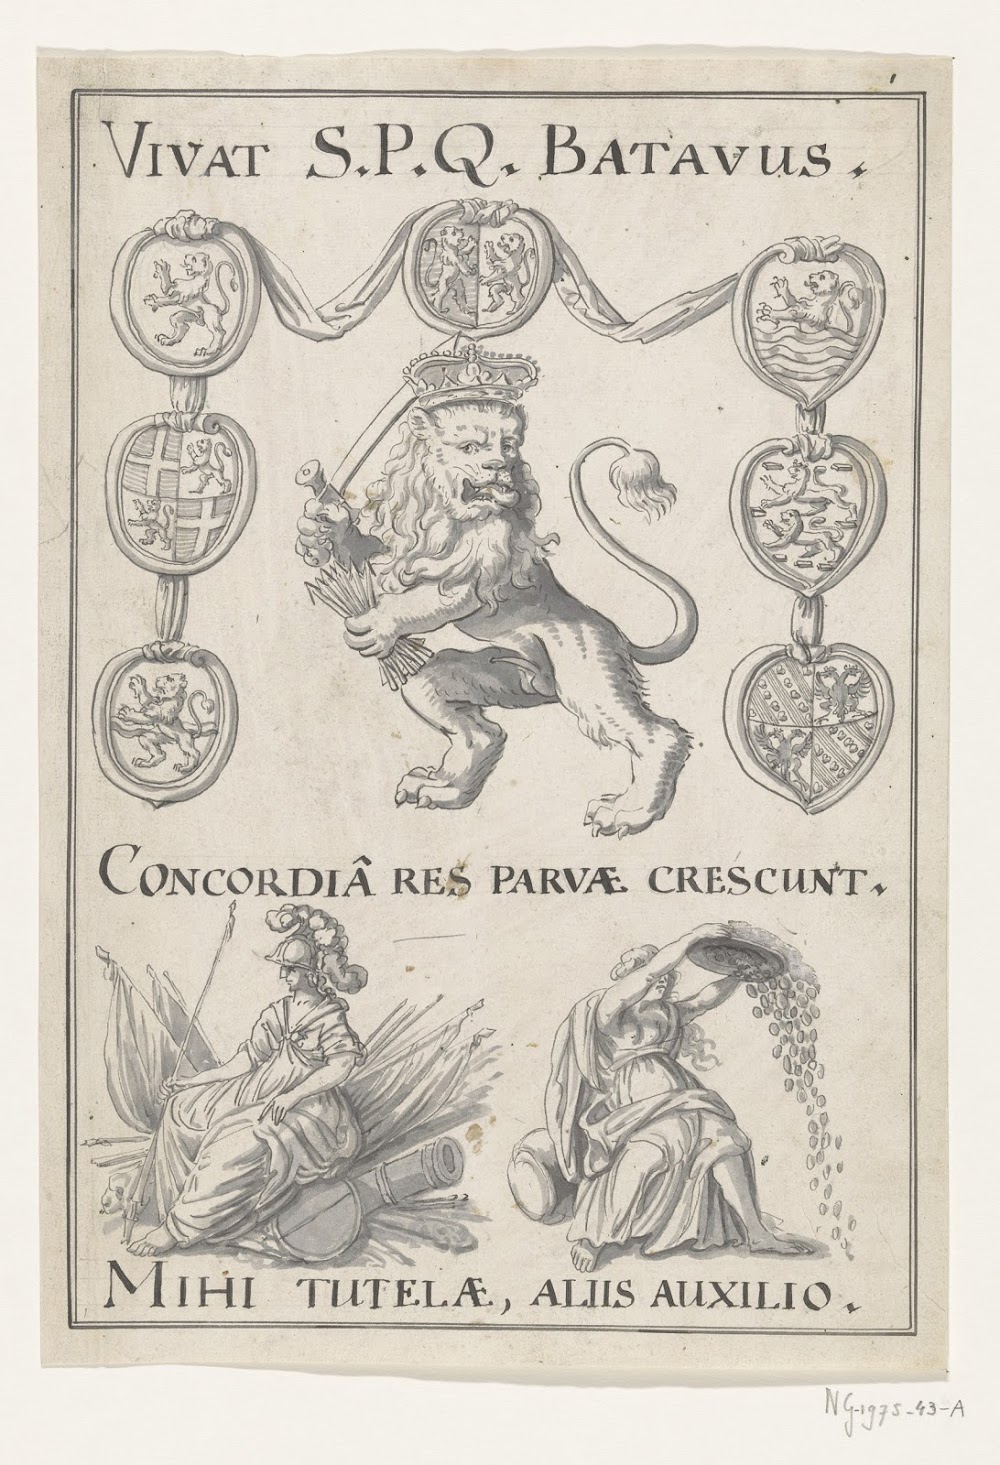 VIVAT S.P.Q. BATAVUS.
CONCORDIÂ RES PARVÆ CRESCUNT.
MIHI TUTELÆ, ALIIS AUXILIO.
NG-1975-43-A